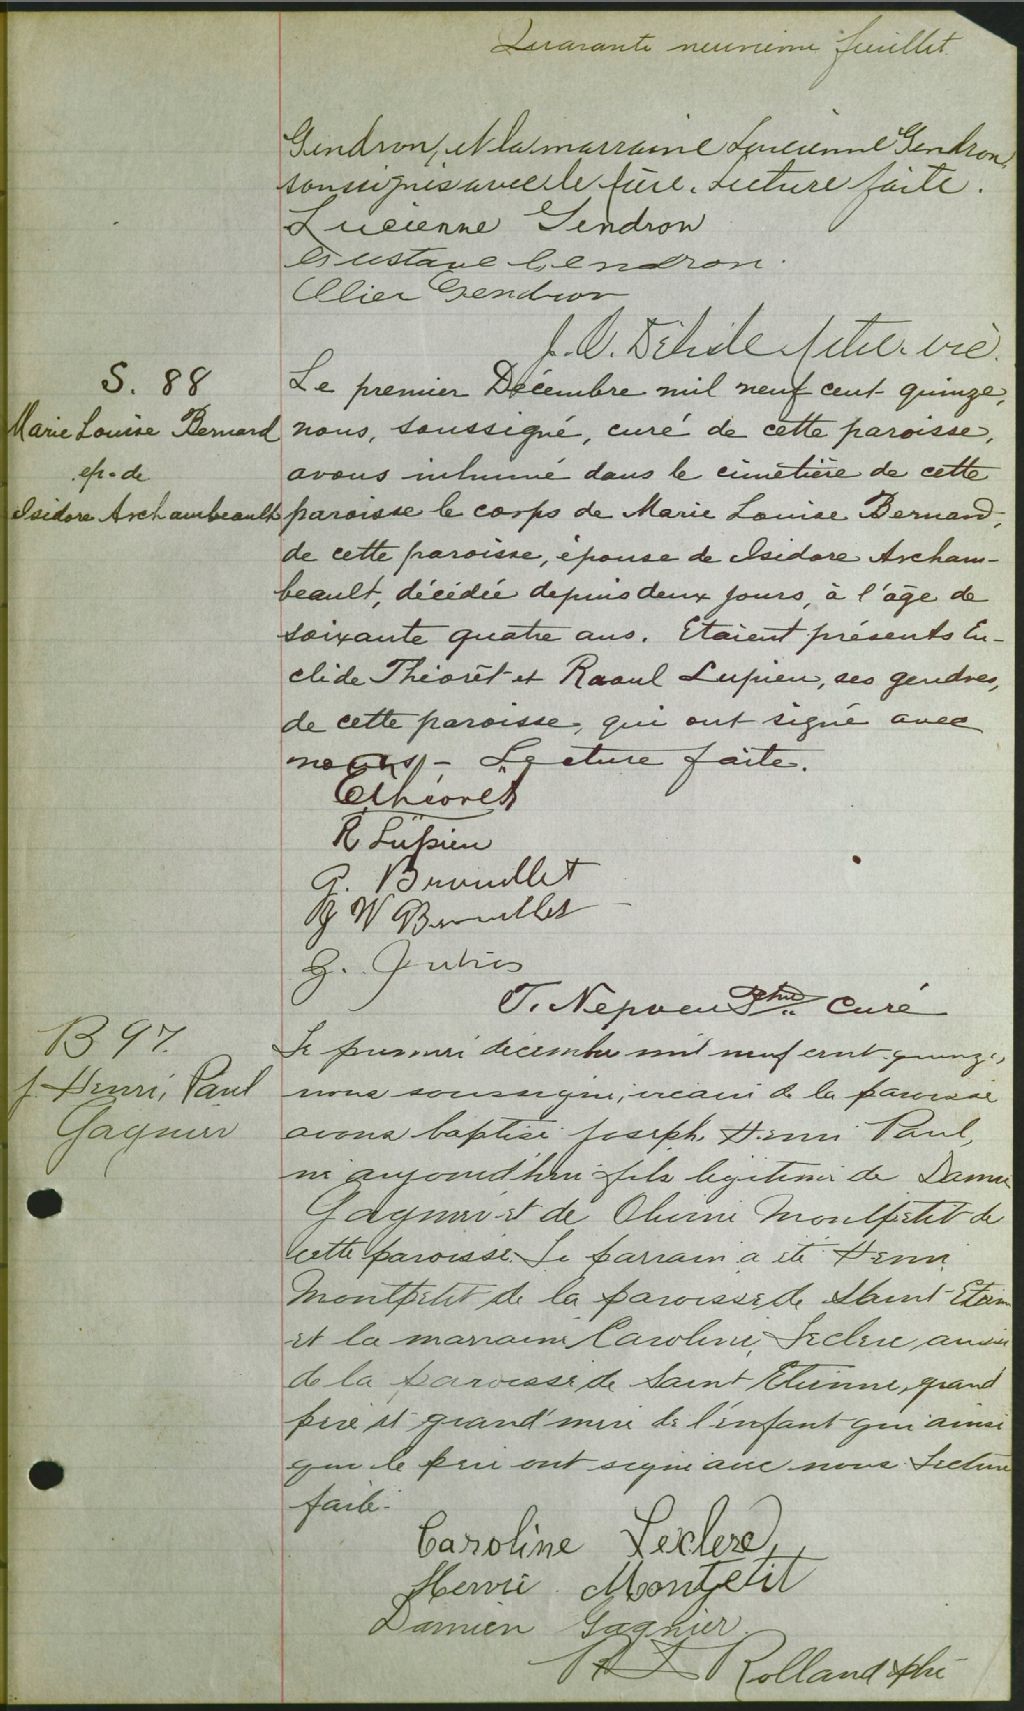 Quarante neuvième feuillet
Gendron, et la marraine Lucienne Gendron,
soussignés avec le père. Lecture faite.
Lucienne Gendron
Gustave Gendron.
Olier Gendron
S. 88
Marie Louise Bernard
ep. de
Isidore Archambeault
Le premier Décembre mil neuf cent quinze,
nous, soussigné, curé de cette paroisse,
avons inhumé dans le cimetière de cette
paroisse le corps de Marie Louise Bernard,
de cette paroisse, épouse de Isidore Archam-
beault, décédée depuis deux jours, à l'âge de
soixante quatre ans. Etaient présents Eu-
clide Théorêt et Raoul Lupien, ses gendres,
de cette paroisse, qui ont signé avec
nous – Lecture faite.
E Théorêt
R Lupien
G. Brouillet
J W Brouillet
T. Nepveu Ptre curé
B 97.
J. Henri, Paul
Gagnier
Le premier décembre mil neuf cent quinze,
nous soussigné, vicaire de la paroisse
avons baptisé Joseph Henri Paul,
né aujourd'hui fils légitime de Damien
Gagnier et de Olivine Montpetit de
cette paroisse. Le parrain a été Henri
Montpetit de la paroisse de Saint Etienne
et la marraine Caroline Leclerc aussi
de la paroisse de Saint Etienne, grand
père et grand'mère de l'enfant qui ainsi
que le père ont signé avec nous. Lecture
faite.
Caroline Leclerc
Henri Montpetit
Damien Gagnier.
Rolland ptre